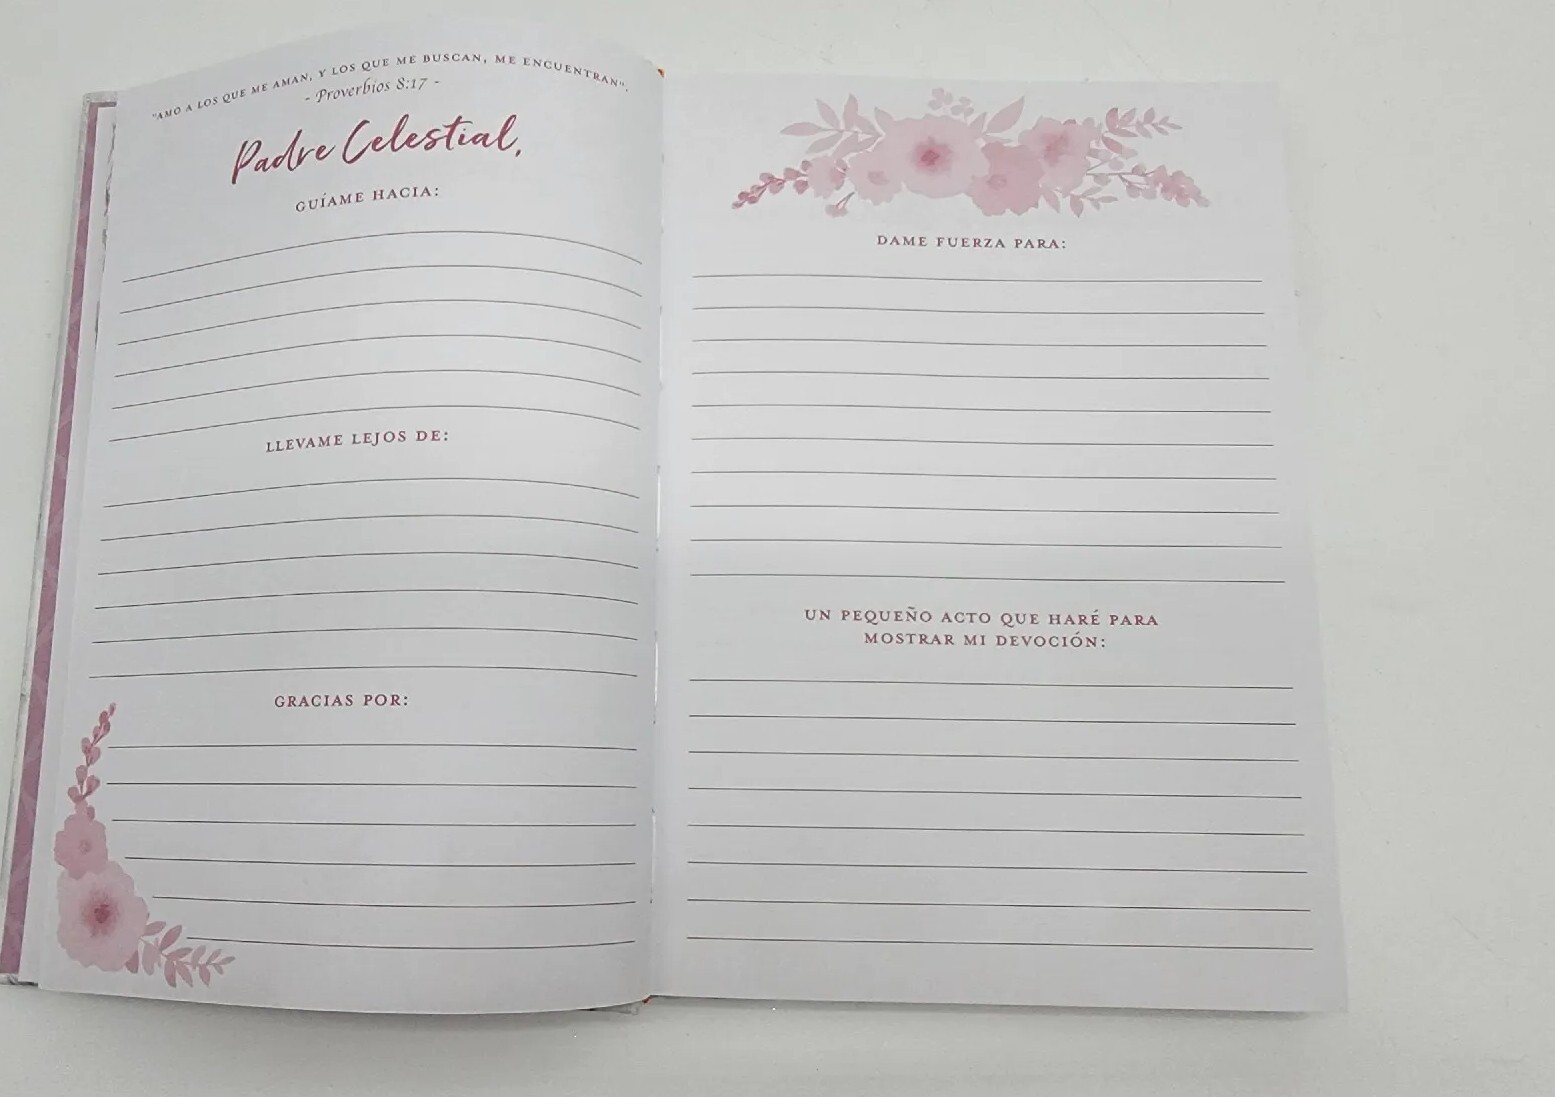 "AMO A LOS QUE ME AMAN, Y LOS QUE ME BUSCAN, ME ENCUENTRAN".
- Proverbios 8:17 -
Padre Celestial,
GUÍAME HACIA:
LLEVAME LEJOS DE:
GRACIAS POR:
DAME FUERZA PARA:
UN PEQUEÑO ACTO QUE HARÉ PARA
MOSTRAR MI DEVOCIÓN: